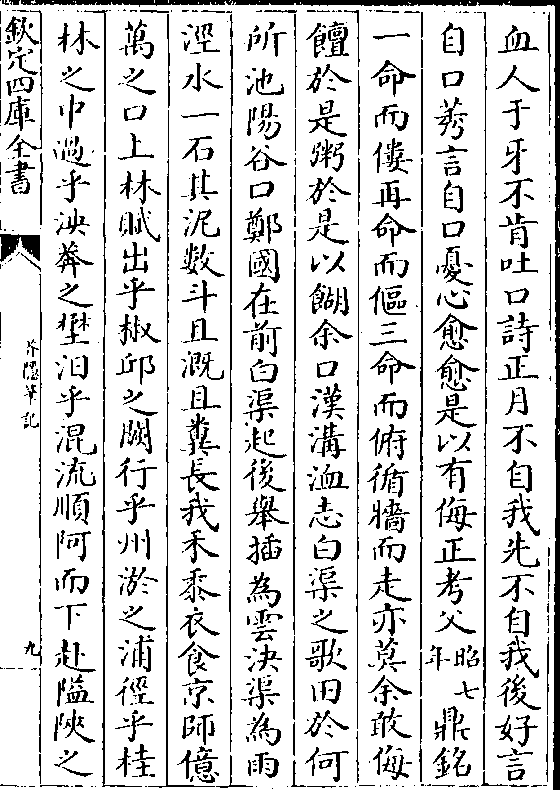 血人于牙不肯吐口詩正月不自我先不自我後好言
自口莠言自口憂心愈愈是以有侮正考父昭七年鼎銘
一命而僂再命而傴三命而俯循牆而走亦莫余敢侮
饘於是粥於是以餬余口漢溝洫志白渠之歌田於何
所池陽谷口鄭國在前白渠起後舉插為雲決渠為雨
涇水一石其泥數斗且溉且糞長我禾黍衣食京師億
萬之口上林賦出乎椒邱之闕行乎州淤之浦徑乎桂
林之中過乎泱莽之壄汨乎混流順阿而下赴隘陝之
欽定四庫全書
芥隱筆記
九